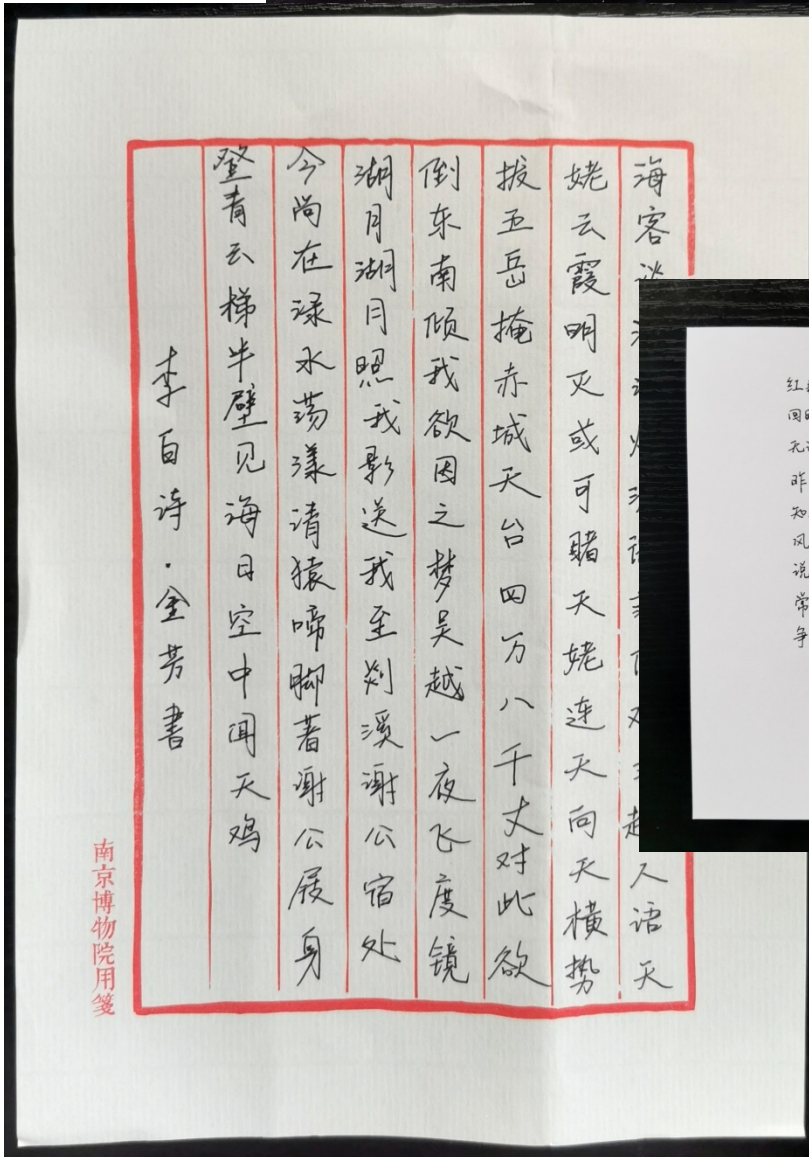 海客
人语天
姥云霞明灭或可赌天姥连天向天横势
拔五岳掩赤城天台四万八千丈对此欲
倒东南倾我欲因之梦吴越一夜飞度镜
湖月湖月照我影送我至剡溪谢公宿处
今尚在渌水荡漾清猿啼脚著谢公屐身
登青云梯半壁见海日空中闻天鸡
李白诗·金芳書
南京博物院用箋
红
回
无
昨
知
风
说
常
争